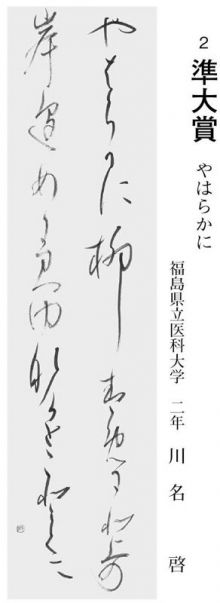 2 準大賞 やはらかに
福島県立医科大学 二年 川名 啓
やはらかに柳あをめる北上の
岸邊めに見ゆ泣けとごとくに